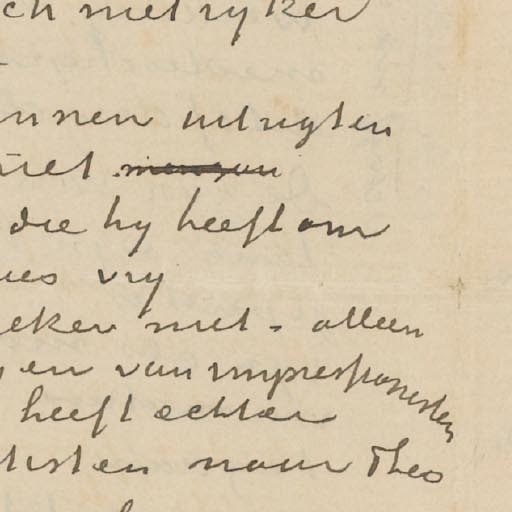 ch niet ryker
nnen uitrigten
niet
die hy heeft om
ues vry
eker niet - alleen
en van impressionisten
heeft echter
tisten naar Theo